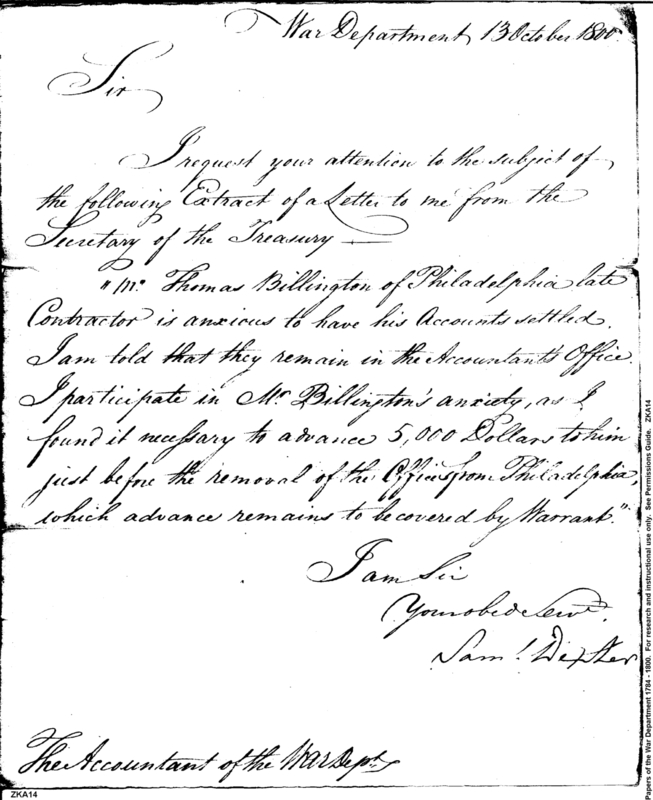 War Department, 13 October 1800.
Sir
I request your attention to the subject of
the following Extract of a Letter to me from the
Secretary of the Treasury —
"Mr. Thomas Billington of Philadelphia late
Contractor is anxious to have his Accounts settled.
I am told that they remain in the Accountant's Office.
I participate in Mr. Billington's anxiety, as I
found it necessary to advance 5,000 Dollars to him
just before the removal of the Offices from Philadelphia,
which advance remains to be covered by Warrant."
I am Sir
Your obed Servt.
Saml. Dexter
The Accountant of the War Dept.
ZKA14
Papers of the War Department 1784 - 1800. For research and instructional use only. See Permissions Guide. ZKA14